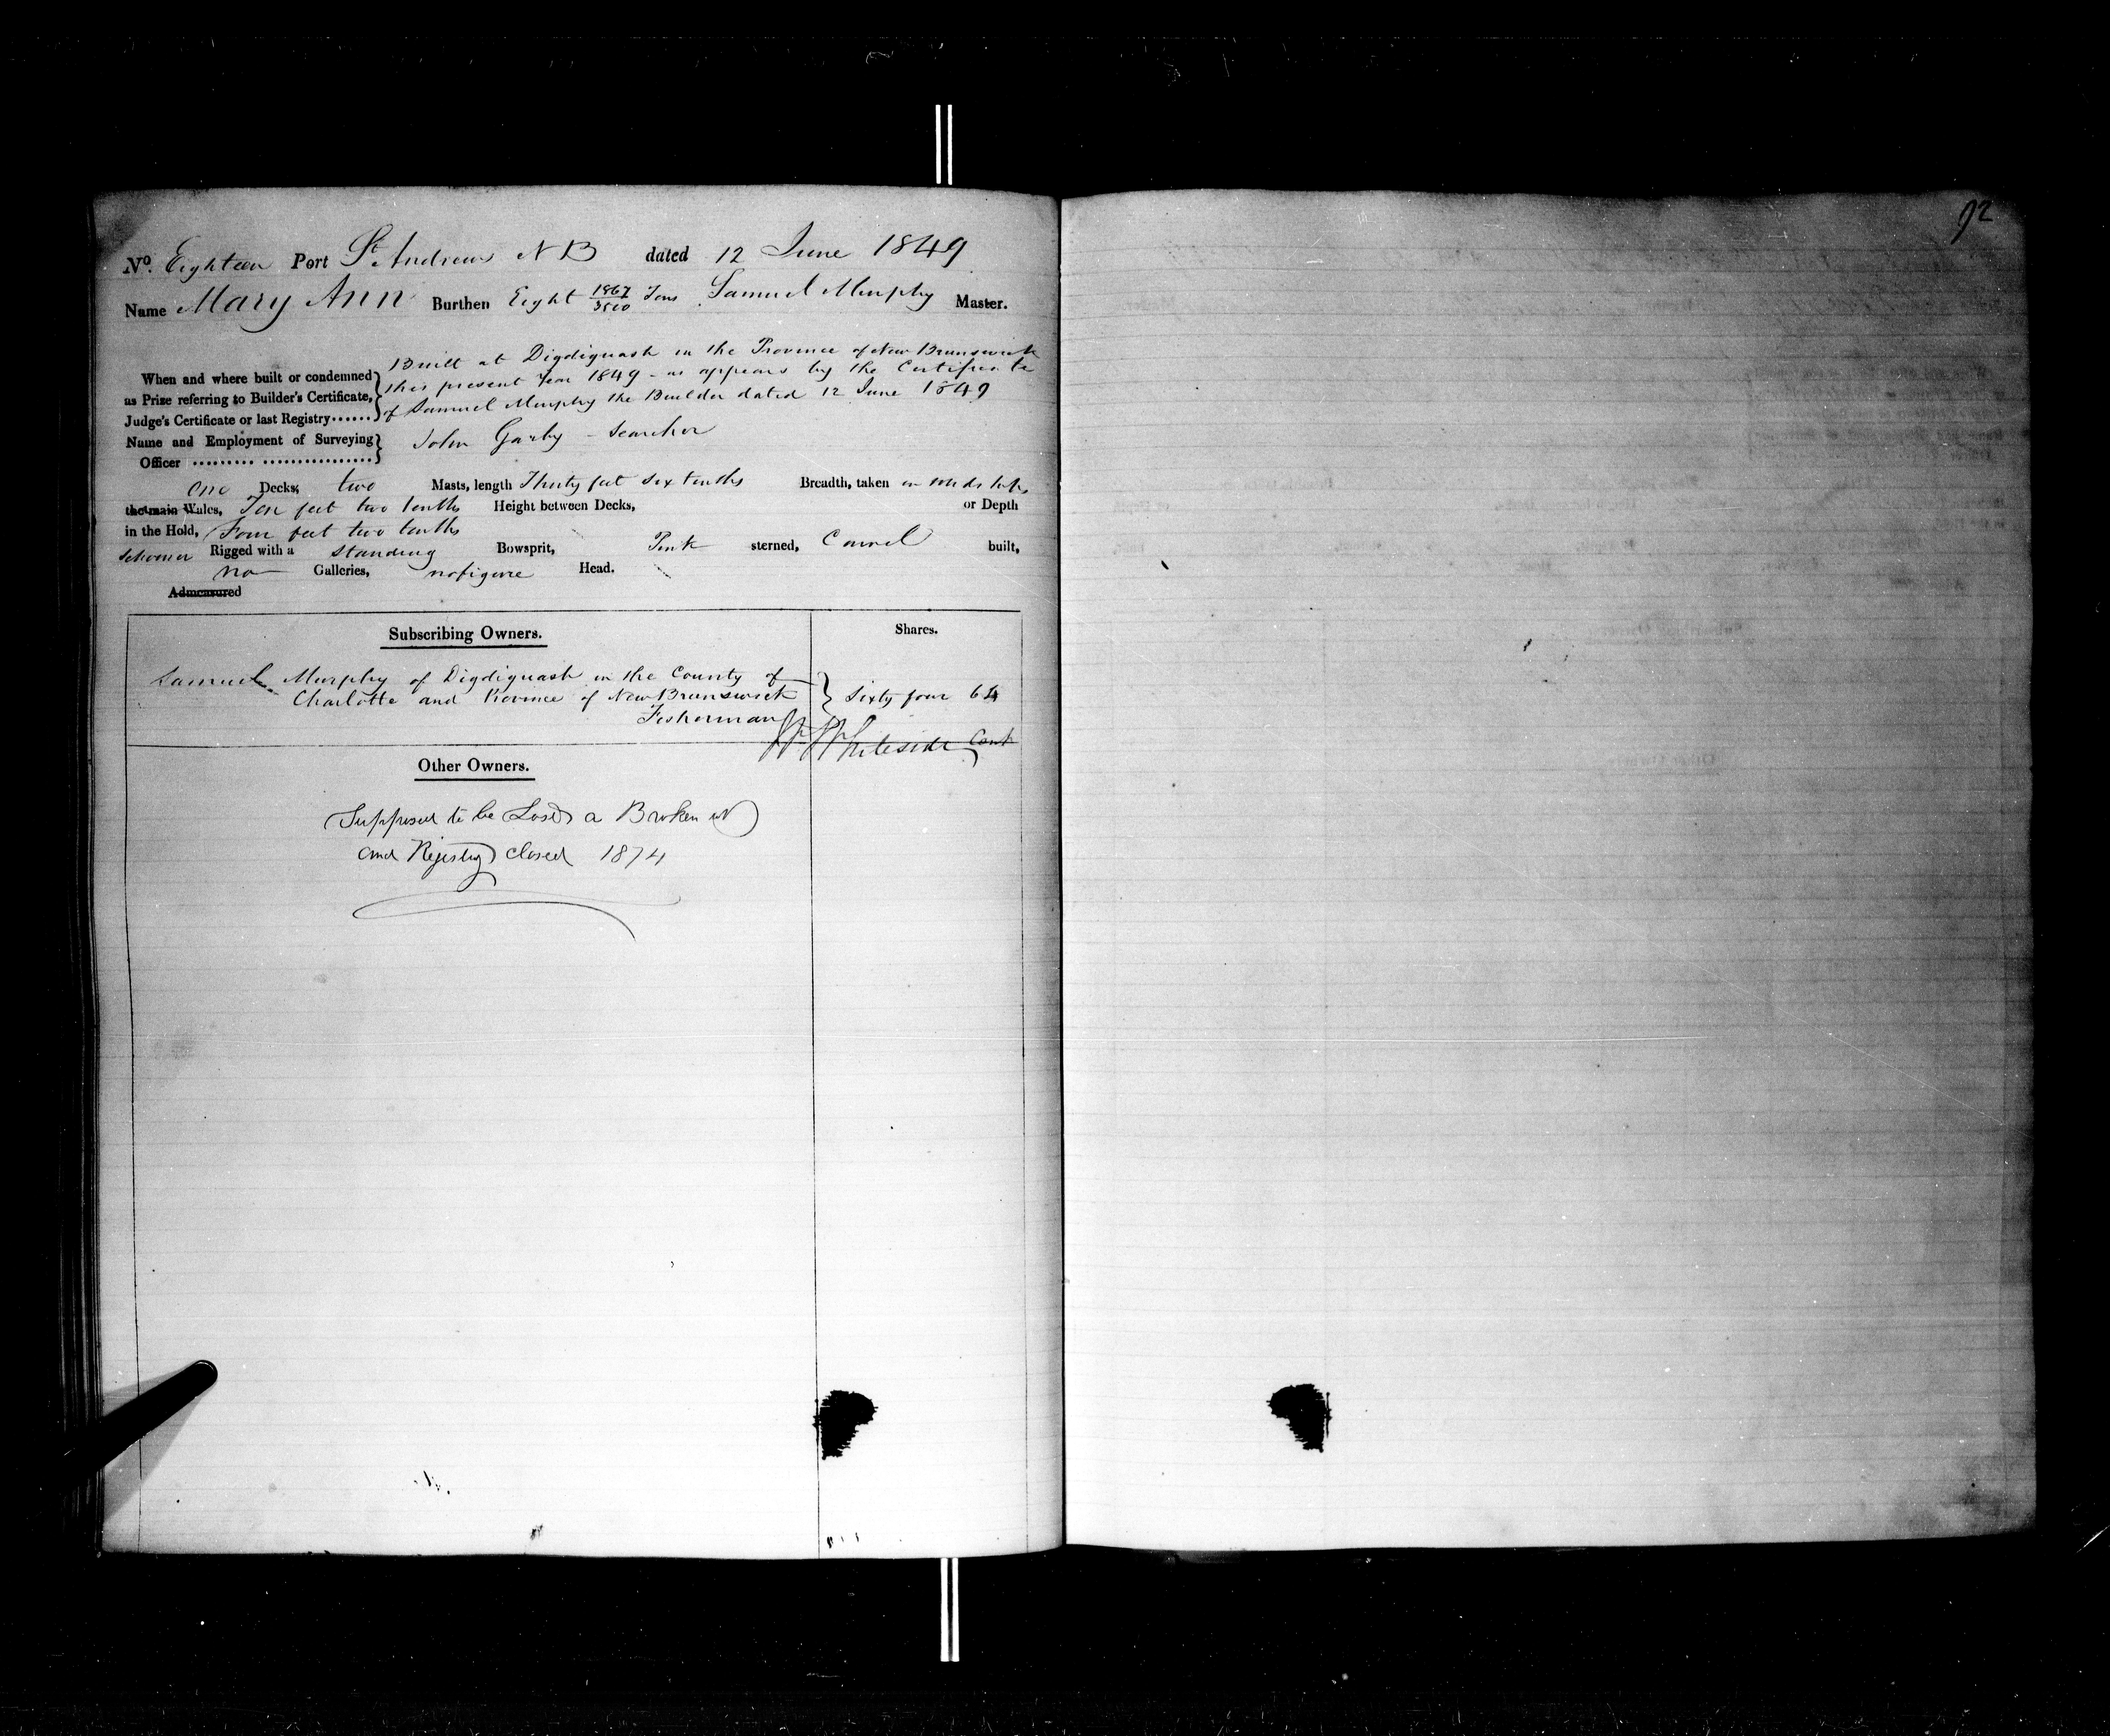 No. Eighteen Port St Andrews N B dated 12 June 1849
Name Mary Ann Burthen Eight 1867/3500 Tons Samuel Murphy Master.
Built at Digdiguash in the Province of New Brunswick
When and where built or condemned this present Year 1849 - as appears by the Certificate
as Prize referring to Builder's Certificate, of Samuel Murphy the Builder dated 12 June 1849
Judge's Certificate or last Registry......
Name and Employment of Surveying John Garby - Searcher
Officer ......... ................
one Decks; two Masts, length Thirty feet six tenths Breadth, taken in midships
the main Wales, Ten feet two tenths Height between Decks, or Depth
in the Hold, Four feet two tenths
Schooner Rigged with a standing Bowsprit, Pink sterned, Carvel built,
no Galleries, no figure Head.
Admeasured
Subscribing Owners. Shares.
Samuel Murphy of Digdiguash in the County of
Charlotte and Province of New Brunswick Sixty four 64
Fisherman
Whiteside Cont
Other Owners.
Supposed to be Lost or Broken up
and Registry closed 1874
92